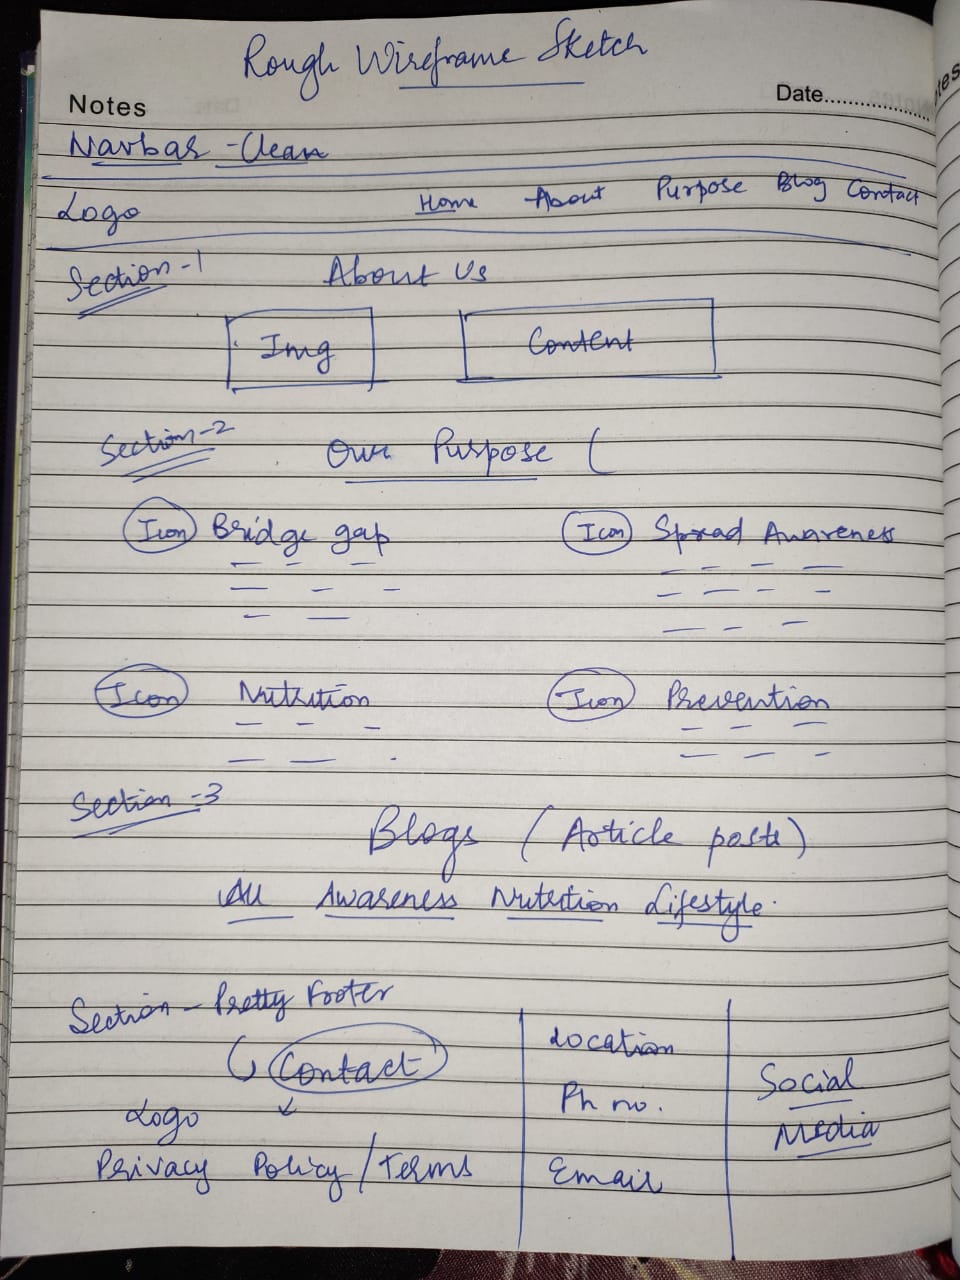 Rough Wireframe Sketch
Notes
Date....................
Navbar - Clean
Logo Home About Purpose Blog Contact
Section-1 About Us
Img Content
Section-2 Our Purpose (
Icon Bridge gap Icon Spread Awareness
Icon Nutrition Icon Prevention
Section-3
Blogs (Article posts)
All Awareness Nutrition Lifestyle.
Section - Pretty Footer
Contact
Logo
Privacy Policy/Terms
Location
Ph no.
Email
Social
Media